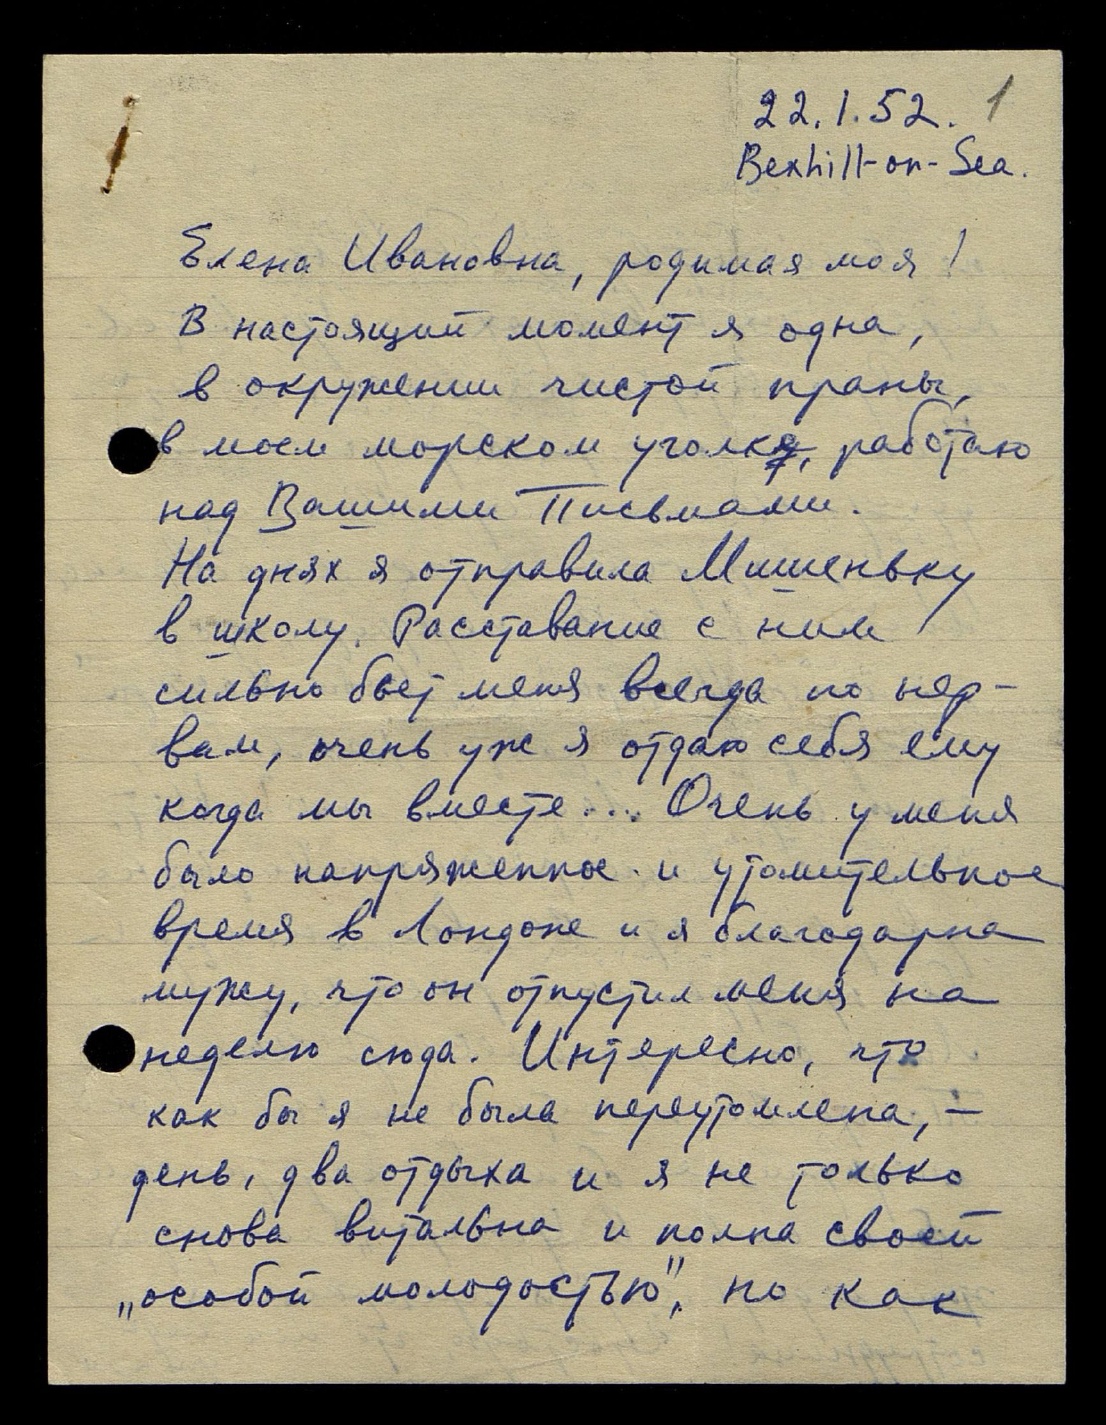 22.1.52. 1
Bexhill-on-Sea.
Елена Ивановна, родимая моя!
В настоящий момент я одна,
в окружении чистой праны,
в моем морском уголке, работаю
над Вашими Письмами.
На днях я отправила Мишеньку
в школу. Расставание с ним
сильно бьет меня всегда по нер-
вам, очень уж я отдаю себя ему
когда мы вместе... Очень у меня
было напряженное и утомительное
время в Лондоне и я благодарна
мужу, что он отпустил меня на
неделю сюда. Интересно, что
как бы я не была переутомлена, —
день, два отдыха и я не только
снова витальна и полна своей
„особой молодостью", но как